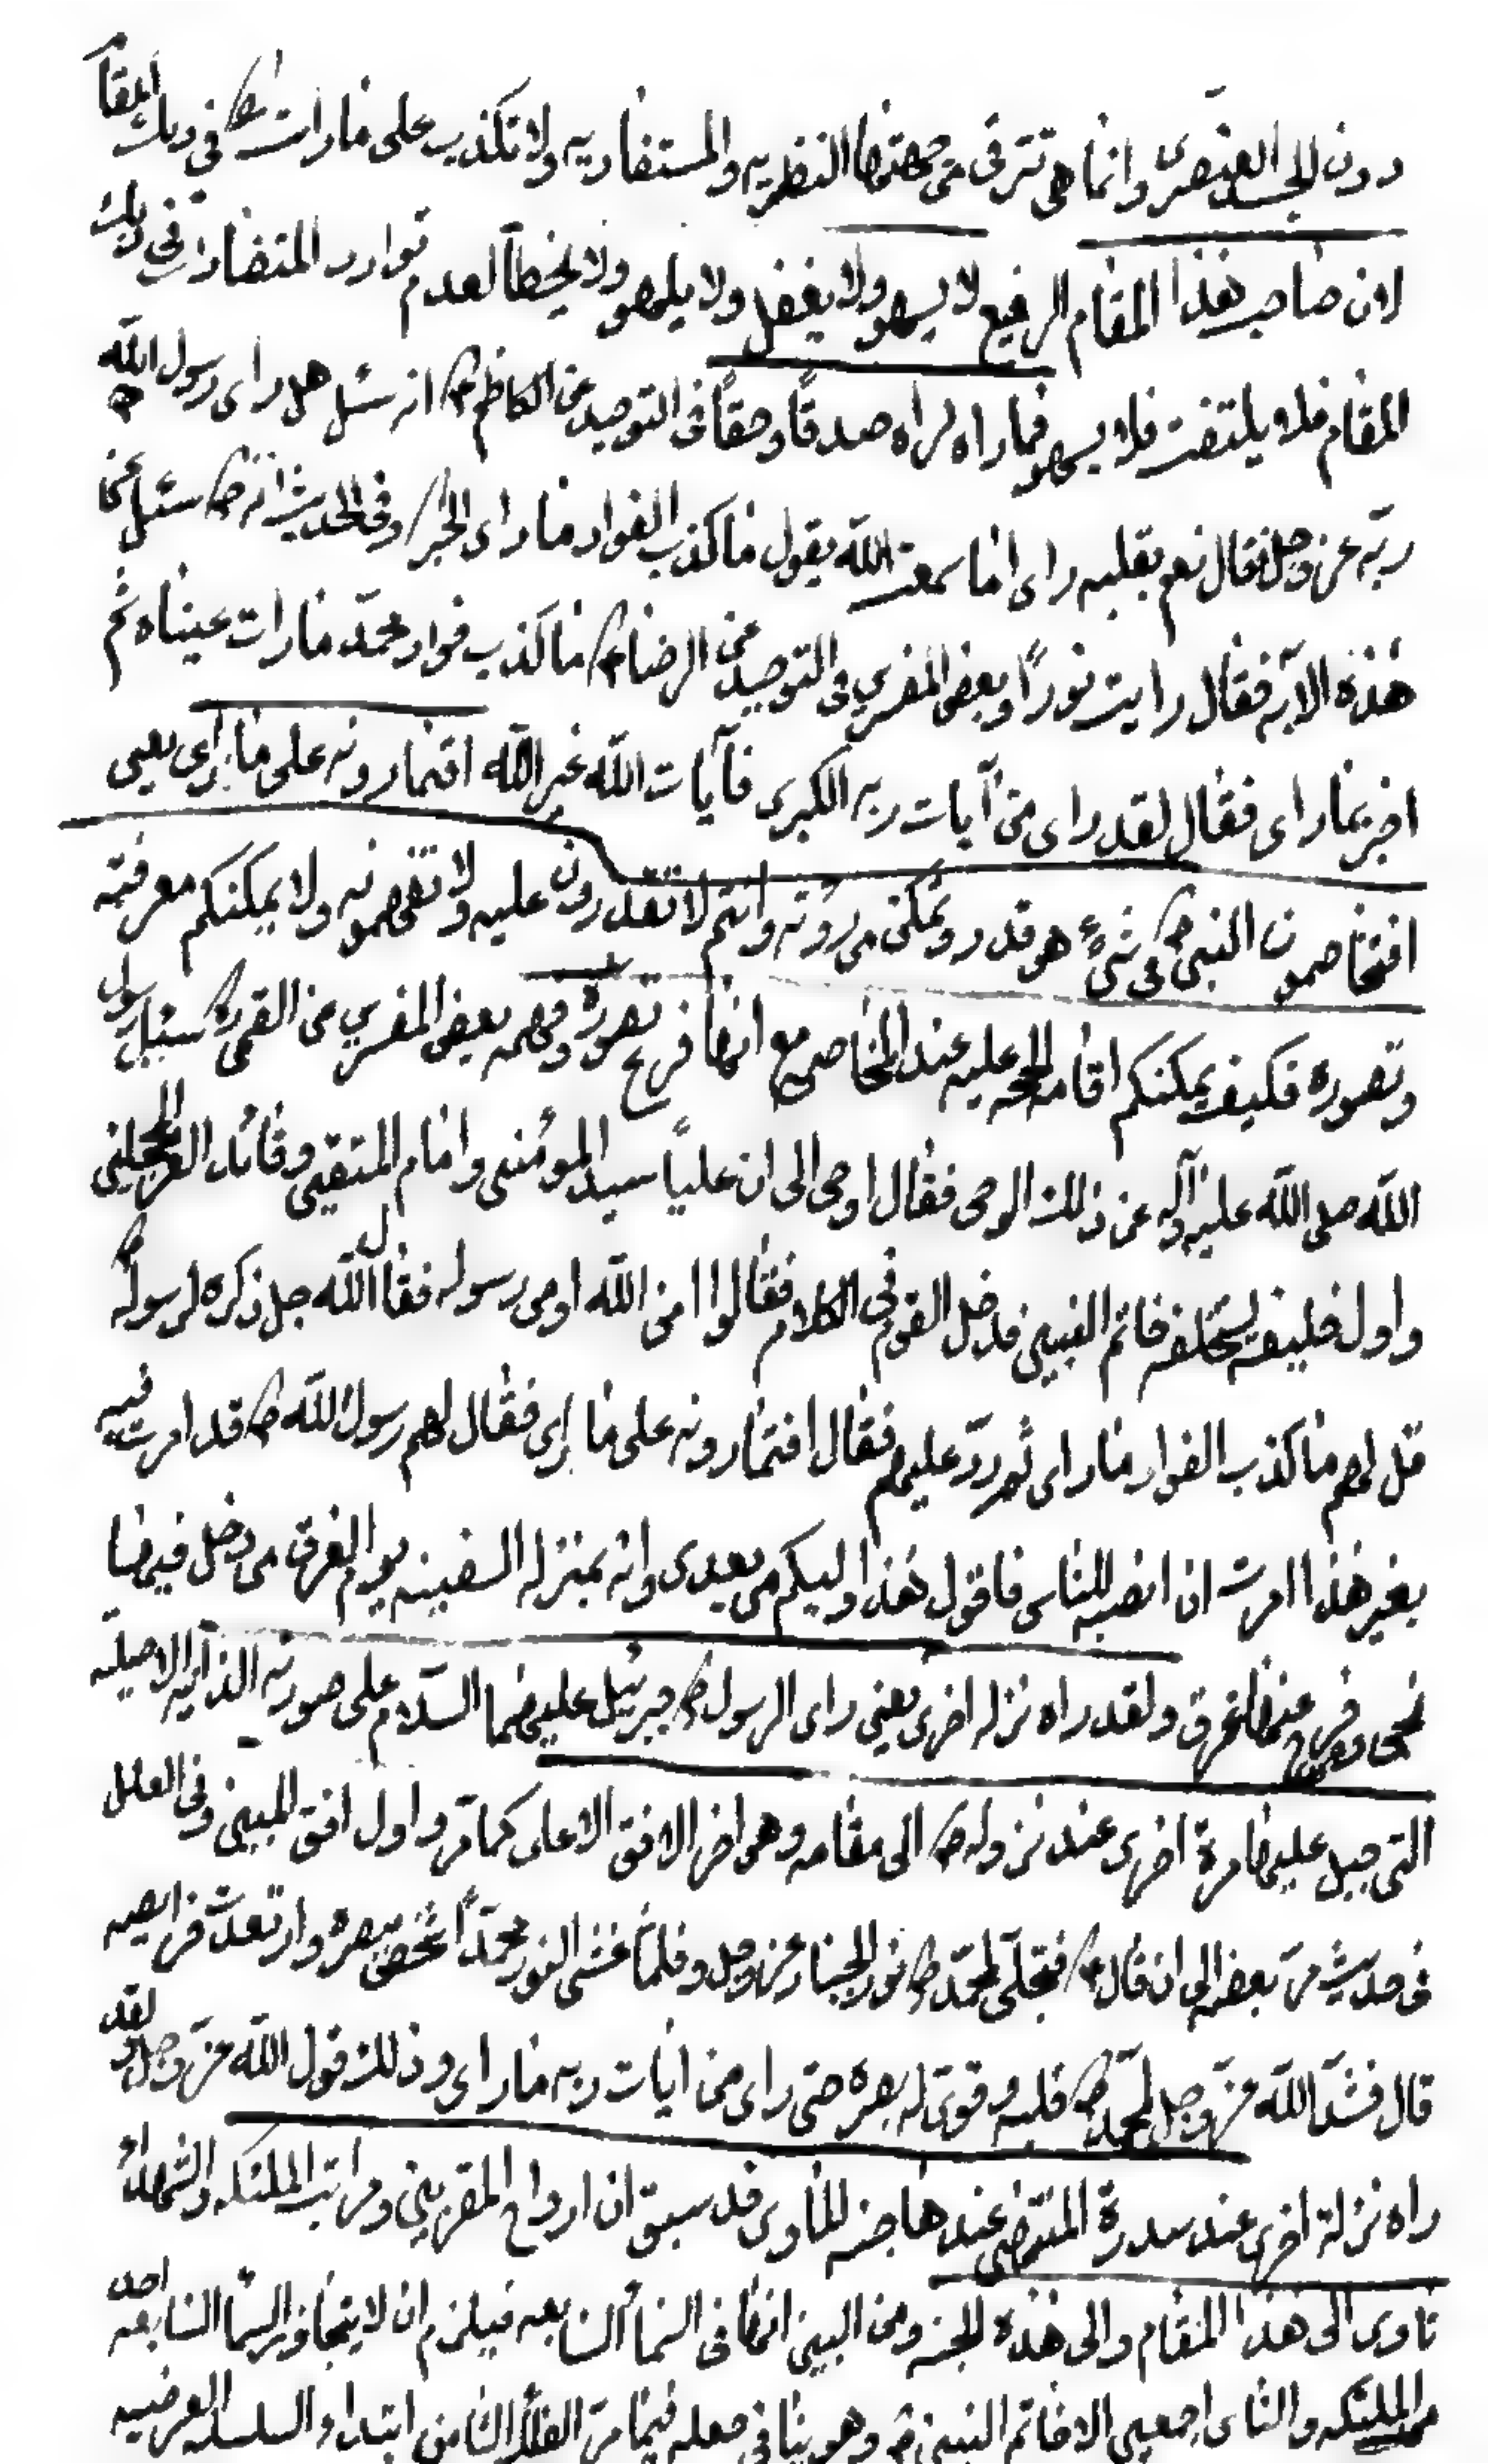 دون الجسد العنصرى وانما هى تترقى من جهتها النظريه والمستفاديه ولا تكذيب على ما رات ص فى ذلك المقام
لان صاحب هذا المقام الرفيع لا يسهو ولا يغفل ولا يلهو ولا يخطأ لعدم توارد المتضادات فى ذلك
المقام فلا يلتفت فلا يسهو فما راه لراه صدقًا وحقًا فى التوحيد عن الكاظم ع انه سئل هل راى رسول الله ص
ربّه عز وجل فقال نعم بقلبه راى اما سمعت الله يقول ما كذب الفواد ما راى الخبر وفى الحديث انه ص سئل عن
هذه الايه فقال رايت نورًا وبعض المفسرين فى التوحيد عن الرضا ع ما كذب فواد محمّد ما رات عيناه ثم
اخبر بما راى فقال لقد راى من آيات ربه الكبرى فآيات الله غير الله افتمارونه على ما يرى يعنى
افتخاصمون النبى ص فى شىء هو قدر وتمكن من رؤته وانتم لا تقدرون عليه ولا تفهمونه ولا يمكنكم معرفته
وتصوره فكيف يمكنكم اقامه الحجه عليه عند المخاصمه مع انها فرع تصوره وفهمه بعض المفسرين عن القمى ره سئل رسول
الله صلى الله عليه وآله عن ذلك الوحى فقال اوحى الى ان عليًا سيد المومنين وامام المتقين وقائد الغر المحجلين
واول خليفه يستخلفه خاتم النبيين فدخل القوم فى الكلام فقالوا امن الله او من رسوله فقال الله جل ذكره لرسوله ص
قل لهم ما كذب الفواد ما راى ثم ردّ عليهم فقال افتمارونه على ما يرى فقال لهم رسول الله ص قد امرت فيه
بغير هذا امرت ان انصبه للناس فاقول هذا وليكم من بعدى وانه بمنزله السفينه يوم الغرق من دخل فيها
نجى ومن خرج عنها غرق ولقد راه نزله اخرى يعنى راى الرسول ص جبرئيل عليهما السّلام على صورته الذاتيه الاصليّه
التى جبل عليها مرة اخرى عند نزوله ص الى مقامه وهو اخر الافق الاعلى كما مرّ واول افق المبين وفى العلل
فى حديث مرّ بعضه الى ان قال ع فتجلّى لمحمّد ص نور الجبار عز وجل فلمّا غشى النور محمّدًا شخص بصره وارتعدت فرايصه
قال فشدّ الله عزّ وجل لمحمّد ص قلبه وقوى له بصره حتى راى من ايات ربه ما راى وذلك قول الله عزّ وجل ولقد
راه نزلة اخرى عند سدرة المنتهى عندها جنه الماوى قد سبق ان ارواح المقربين ومراتب الملئكه والشهداء
تاوى الى هذا المقام والى هذه الجنه ومن البين انها فى السماء السابعه فيلزم ان لا يتجاوز السماء السابعه احد
من الملئكه والناس اجمعين الا خاتم النبيين ص وهو ينافى معله فيما مرّ الفلك الثامن ابتداء السلسله العرضيه